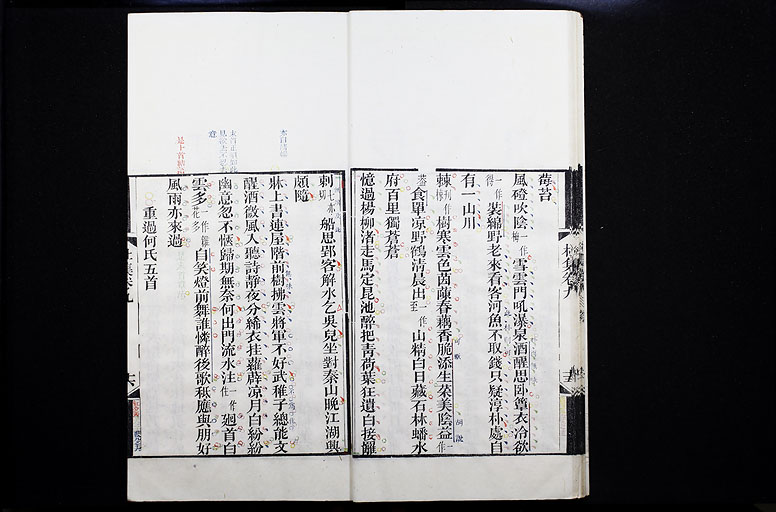 莓苔
風磴吹陰一作梅雪雲門吼瀑泉酒醒思卧簟衣冷欲
一作得裝綿野老來看客河魚不取錢只疑淳朴處自
有一山川
棘樹寒雲色茵蔯春藕香脆添生菜美陰益一作
食單凉野鶴清晨出一作至山精白日藏石林蟠水
府百里獨蒼蒼
憶過楊柳渚走馬定昆池醉把青荷葉狂遺白接䍦
刺七亦切船思郢客解水乞吳兒坐對秦山晚江湖興
頗隨
牀上書連屋階前樹拂雲將軍不好武稚子總能文
醒酒微風入聽詩靜夜分絺衣挂蘿薜凉月白紛紛
幽意忽不愜歸期無奈何出門流水注一作住廻首白
雲多一作雜花多自笑燈前舞誰憐醉後歌秖應與朋好
風雨亦來過
重過何氏五首
杜集卷九